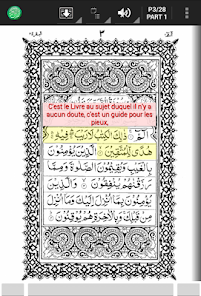 P3/28
PART 1
٣
C'est le Livre au sujet duquel il n'y a
aucun doute, c'est un guide pour les
pieux,
الٓمّٓ ذٰلِكَ الْكِتٰبُ لَا رَيْبَ فِيْهِ
هُدًى لِّلْمُتَّقِيْنَ الَّذِيْنَ يُؤْمِنُوْنَ
بِالْغَيْبِ وَيُقِيْمُوْنَ الصَّلٰوةَ وَمِمَّا
رَزَقْنٰهُمْ يُنْفِقُوْنَ وَالَّذِيْنَ
يُؤْمِنُوْنَ بِمَآ اُنْزِلَ اِلَيْكَ وَمَآ اُنْزِلَ
مِنْ قَبْلِكَ وَبِالْاٰخِرَةِ هُمْ يُوْقِنُوْنَ